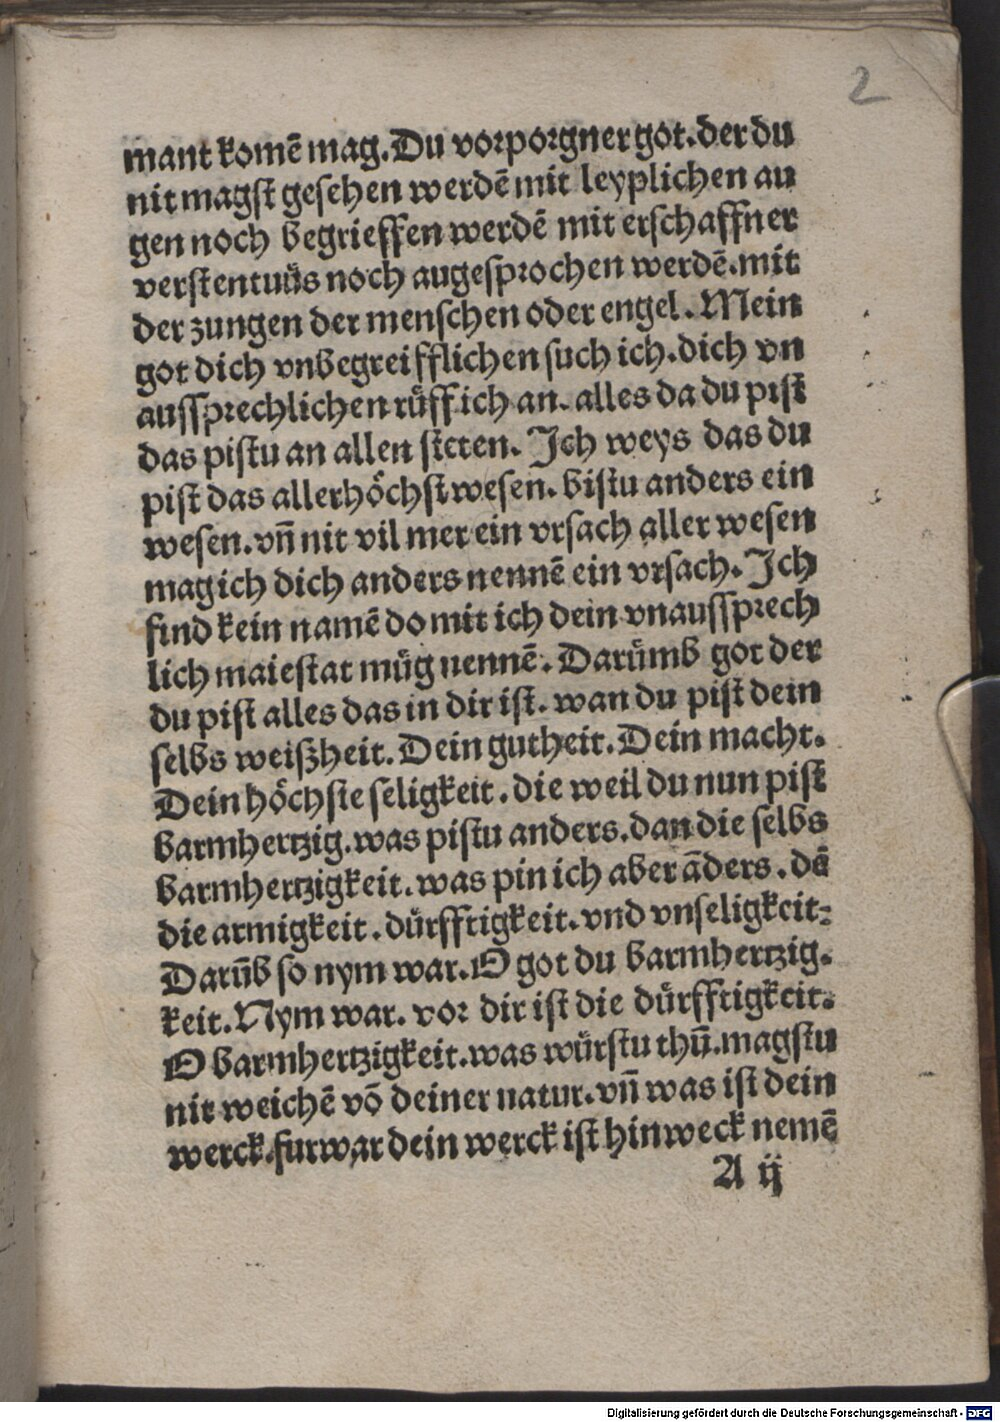 2
mant komē mag. Du vorporgner got. der du
nit magst gesehen werdē mit leyplichen au
gen noch begrieffen werdē mit erschaffner
verstentnüs noch augesprochen werdē. mit
der zungen der menschen oder engel. Mein
got dich vnbegreifflichen such ich. dich vn
aussprechlichen rüff ich an. alles da du pist
das pistu an allen steten. Ich weys das du
pist das allerhöchst wesen. bistu anders ein
wesen. vn̄ nit vil mer ein vrsach aller wesen
mag ich dich anders nennē ein vrsach. Ich
find kein namē do mit ich dein vnaussprech
lich maiestat müg nennē. Darümb got der
du pist alles das in dir ist. wan du pist dein
selbs weißheit. Dein gutheit. Dein macht.
Dein höchste seligkeit. die weil du nun pist
barmhertzig. was pistu anders. dan die selbs
barmhertzigkeit. was pin ich aber āders. dē
die armigkeit. dürfftigkeit. vnd vnseligkeit:
Darūb so nym war. O got du barmhertzig.
keit. Nym war. vor dir ist die dürfftigkeit.
O barmhertzigkeit. was würstu thū. magstu
nit weichē vō deiner natur. vn̄ was ist dein
werck. furwar dein werck ist hinweck nemē
A ij
Digitalisierung gefördert durch die Deutsche Forschungsgemeinschaft - DFG